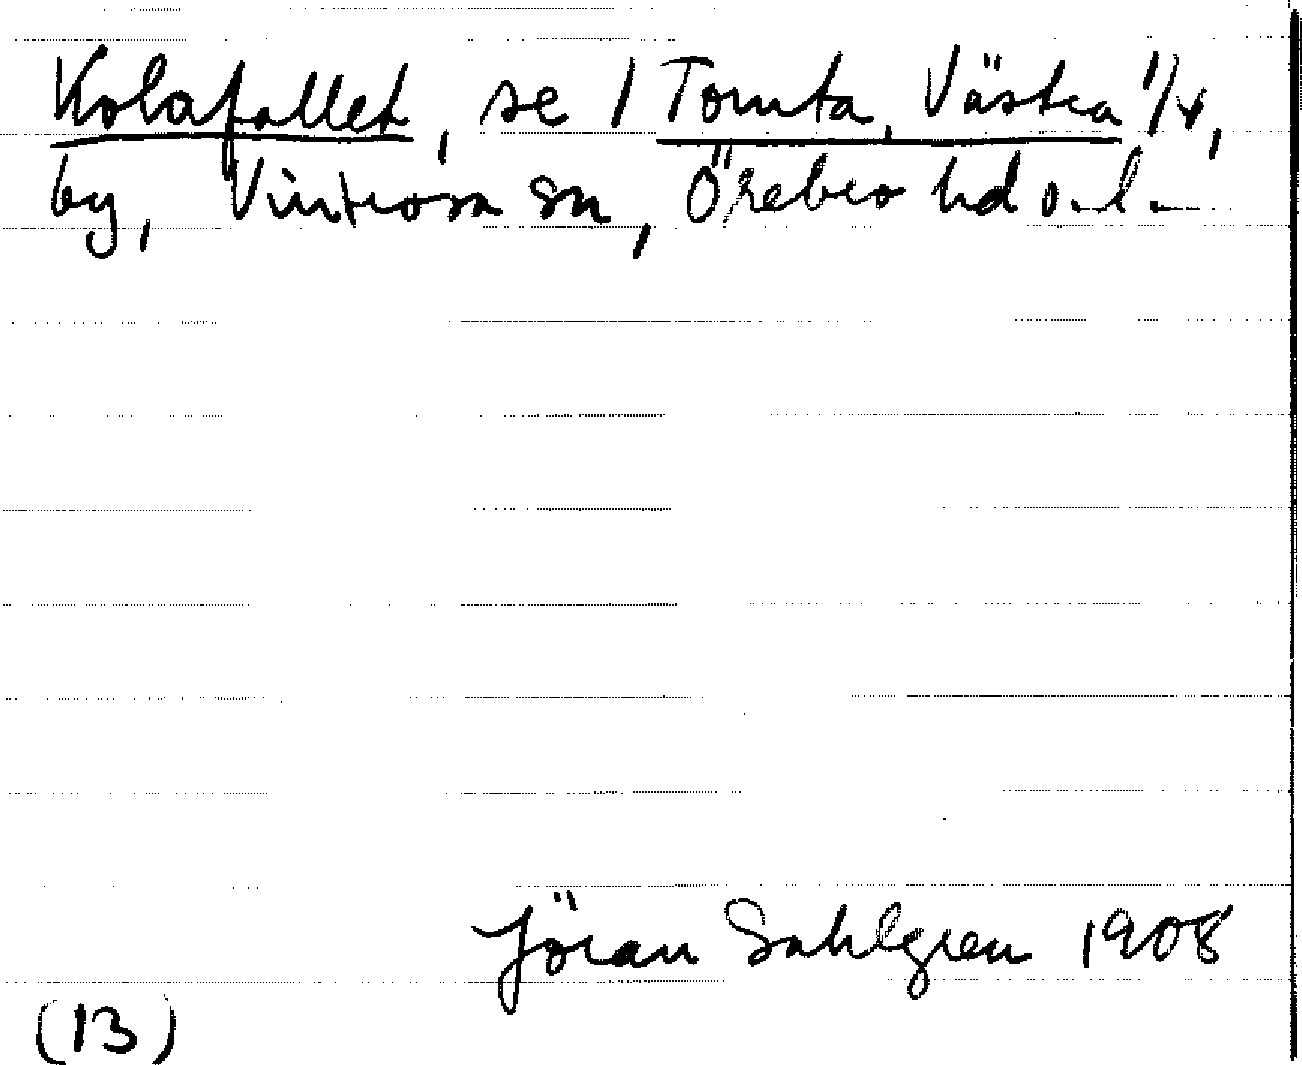 Kolafallet, se 1 Tomta, Västra 1/4,
by, Vintrosa sn, Örebro hd o. l.
Jöran Sahlgren 1908
(13)